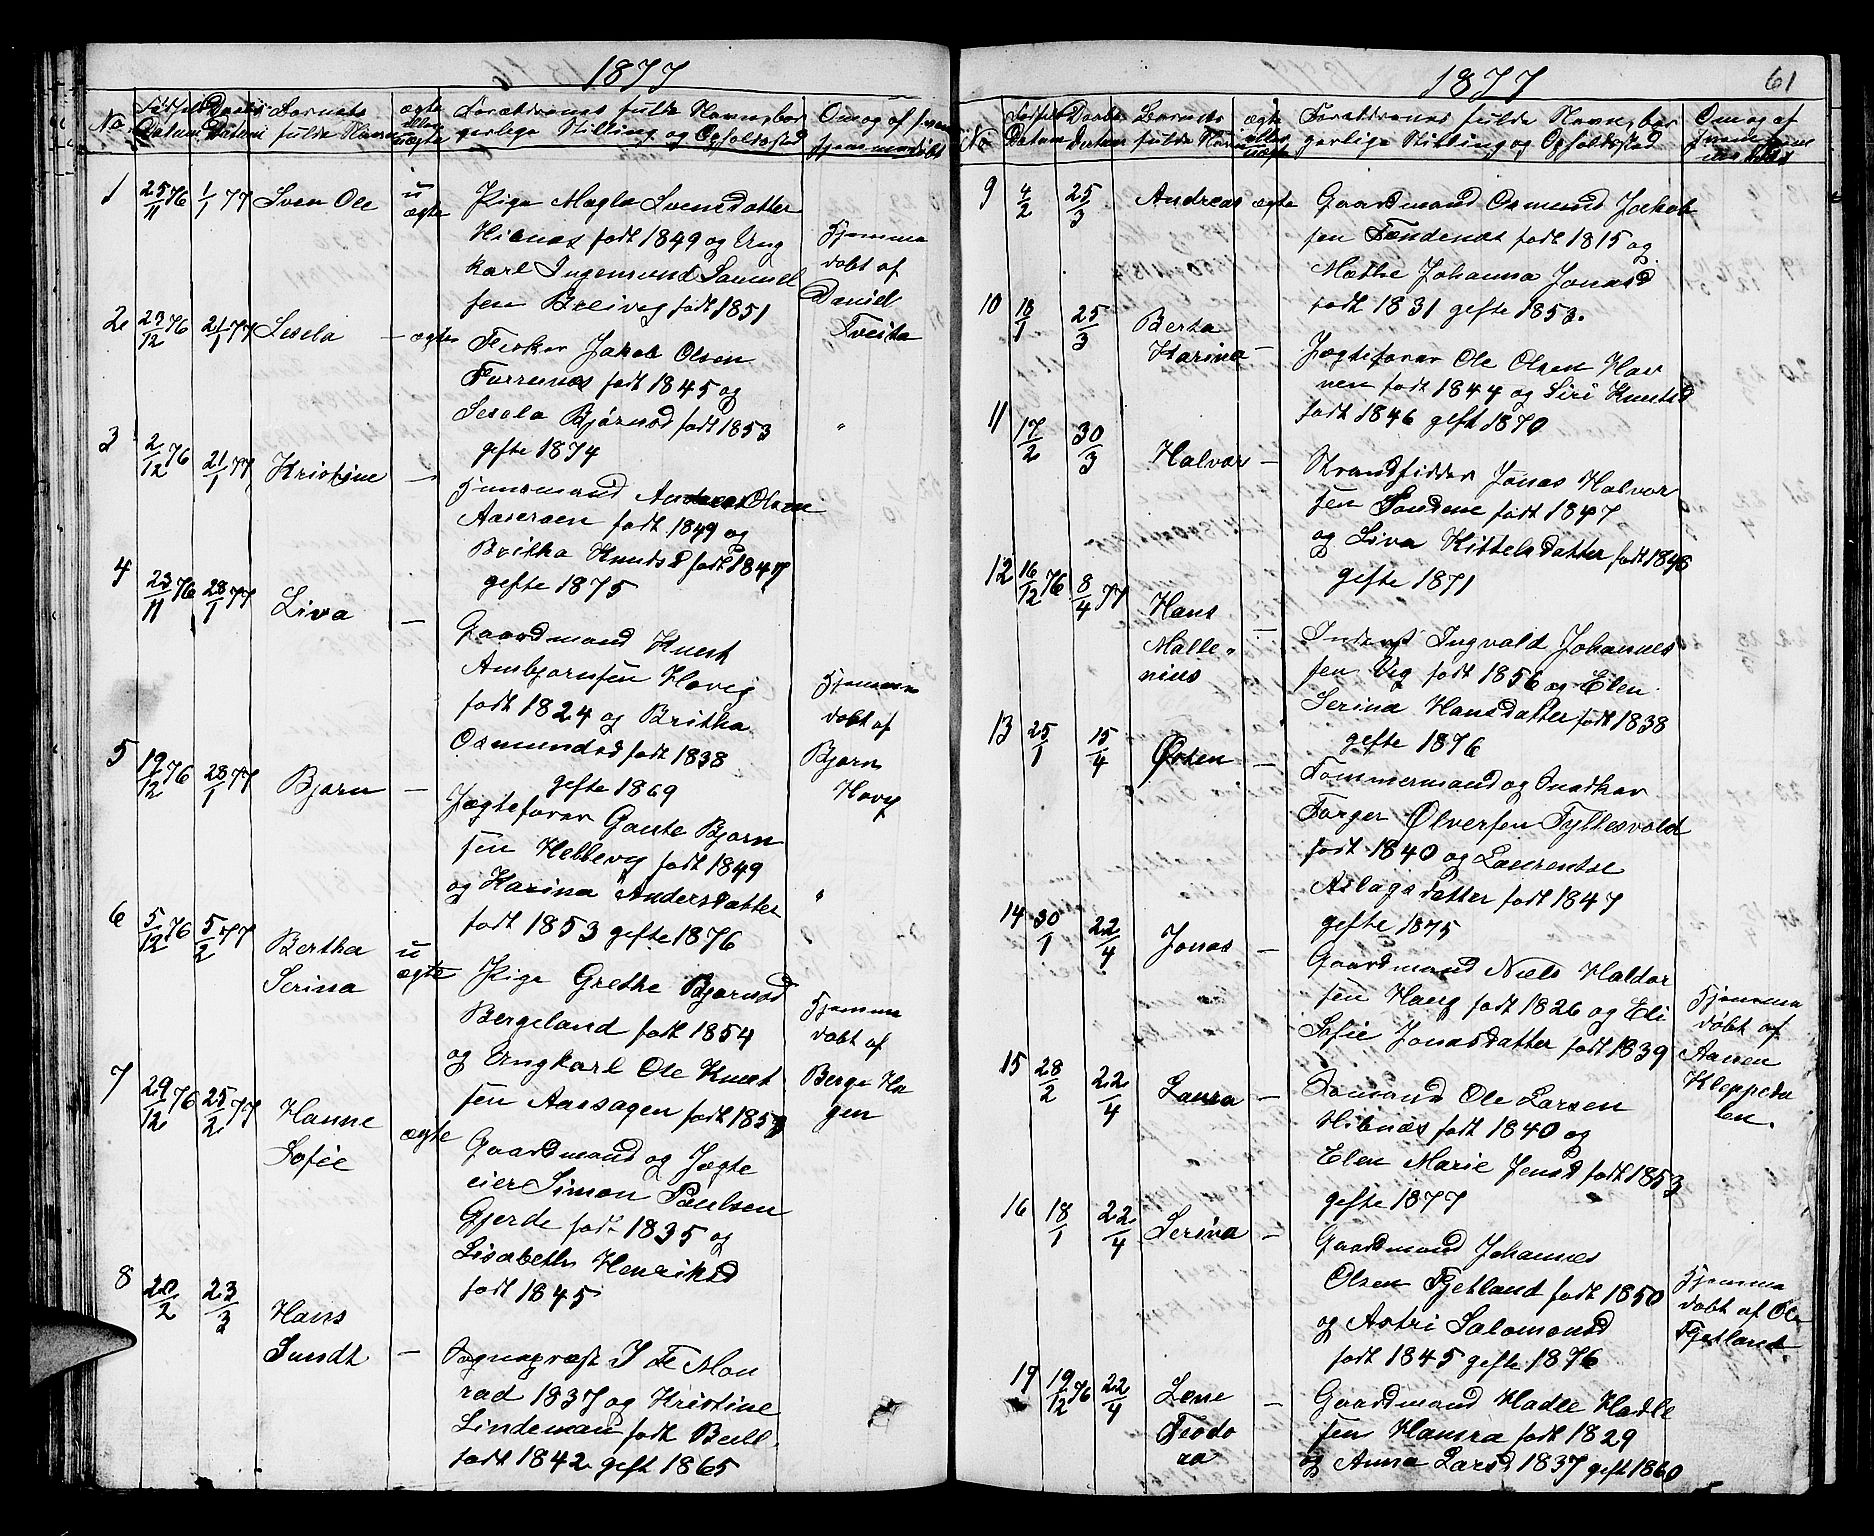 1877
No. Fødsels Datum Daabs Datum Barnets fulde Navn ægte eller uægte Forældrenes fulde Navn, bor gerlige Stilling og Opholdssted Om og af hvem hjemmedøbt
1 25/11 76 1/1 77 Sven Ole u
ægte
Pige Magla Svensdatter
Hilnæs født 1849 og Ung
karl Ingemund Samuel
sen Breivig født 1851
Hjemme
døbt af
Daniel
Tveita
2. 23/12 76 21/1 77 Sesela – ægte
Fisker Jakob Olsen
Furrenæs født 1845 og
Sesela Bjørnsd født 1853
gifte 1874
"
3 2/12 76 21/1 77 Kristine –
Huusmand Andreas Olsen
Aaseroen født 1849 og
Britha Knutsd født 1847
gifte 1875
4 23/11 76 28/1 77 Liva –
Gaardmand Knut
Ambjørnsen Hovig
født 1824 og Britha
Osmundsd født 1838
gifte 1869
Hjemme
døbt af
Bjørn
Hovig
5 19/12 76 28/1 77 Bjørn –
Jægtefører Gaute Bjørn
sen Hellevig født 1849
og Karina Andersdatter
født 1853 gifte 1876
"
6 5/12 76 5/2 77 Bertha
Serina
u
ægte
Pige Grethe Bjørnsd
Bergeland født 1854
og Ungkarl Ole Knut
sen Aarsagen født 1853
Hjemme
døbt af
Berge Ha
gen
7 29/12 76 25/2 77 Hanne
Sofie
ægte
Gaardmand og Jægte
eier Simon Paulsen
Gjerde født 1835 og
Lisabeth Henriksd
født 1845
8 20/2 23/3 Hans
Sundt –
Sognepræst I Fr Mon
rad 1837 og Kristine
Lindeman født Bull
født 1842 gift 1865
1877
61
No Fødsels Datum Daabs Datum Barnets fulde Navn ægte eller uægte Forældrenes fulde Navn, bor gerlige Stilling og Opholdssted Om og af hvem hjemme døbt
9 4/2 25/3 Andreas ægte
Gaardmand Osmund Jakob
sen Tændenæs født 1815 og
Mæthe Johanna Jonasd
født 1831 gifte 1853.
10 18/1 25/3 Berta
Karina –
Jægtefører Ole Olsen Hav
nen født 1844 og Siri Knutsd
født 1846 gift 1870
11 17/2 30/3 Halvor –
Strandsidder Jonas Halvor
sen Sandene født 1847
og Liva Kittelsdatter født 1848
gifte 1871
12 16/12 76 8/4 77 Hans
Malle-
nius
–
Inderst Ingvald Johannes
sen Vig født 1856 og Elen
Serina Hansdatter født 1838
gifte 1876
13 25/1 15/4 Østen –
Tømmermand og Snedker
Torger Ølversen Tyllesvold
født 1840 og Laurentse
Aslagsdatter født 1847
gifte 1875
14 30/1 22/4 Jonas –
Gaardmand Niels Haldor
sen Haug født 1826 og Eli
Sofie Jonasdatter født 1839
Hjemme
døbt af
Aamen
Kleppeda
len.
15 28/2 22/4 Laura –
Sømand Ole Larsen
Hilnæs født 1840 og
Elen Marie Jensd født 1853
gifte 1877
16 18/1 22/4 Serina –
Gaardmand Johannes
Olsen Fjetland født 1850
og Astri Salomonsd
født 1845 gifte 1876
Hjemme
døbt af Ole
Fjetland.
19 19/12 76 22/4 Lene
Teodo
ra
–
Gaardmand Hadle Hadle
sen Hamra født 1829
og Anna Larsd 1837 gift 1860